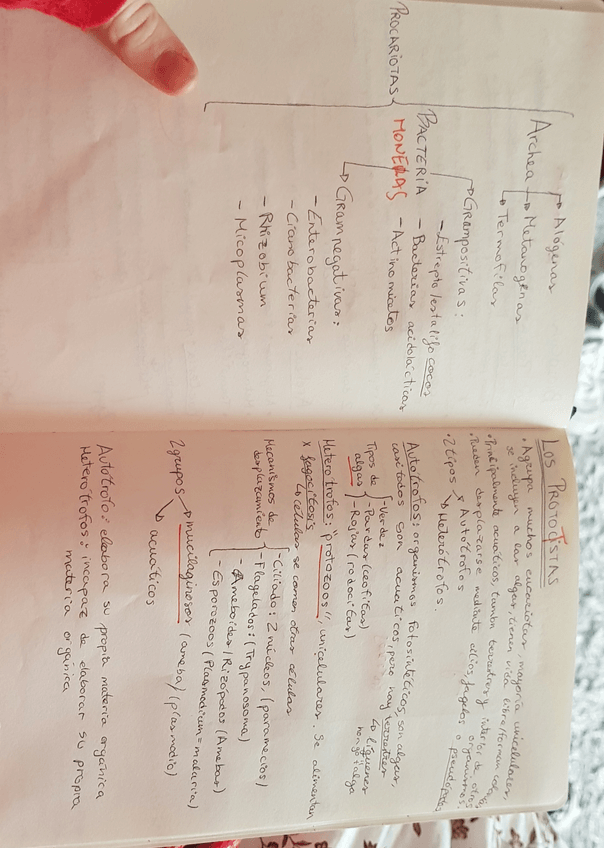 PROCARIOTAS
Archea
Alógenas
Metanogenas
Termofilas
BACTERIA
MONERAS
Grampositivas:
- Estrepto/estafilococos
- Bacterias acidolácticas
- Actinomicetos
Gramnegativas:
- Enterobacterias
- Cianobacterias
- Rhizobium
- Micoplasmas
LOS PROTOTISTAS
• Agrupa muchos eucariotas, mayoría unicelulares,
se incluyen a las algas, tienen vida libre/forman
• Principalmente acuáticos, tambn terrestres y interior de otros
organismos.
• Pueden desplazarse mediante cilios, flagelos o pseudópodos
• 2 tipos
Autótrofos
Heterótrofos.
Autótrofos: organismos fotosintéticos, son algas,
casi todos son acuáticos, pero hay terrestres
líquenes
hongo alga
Tipos de
algas
- Verdes
- Pardas (feofitas)
- Rojas (rodocitas)
Heterótrofos: "protozoos", unicelulares. Se alimentan
x fagocitosis
células se comen otras células
Mecanismos de
desplazamiento
- Ciliado: 2 núcleos, (paramecios)
- Flagelados: (Trypanosoma)
- Ameboides/Rizópodos (Amebas)
- Esporozoos (Plasmodium = malaria)
2 grupos
mucilaginosos (ameba) (plasmodio)
acuáticos
Autótrofo: elabora su propia materia orgánica
Heterótrofos: incapaz de elaborar su propia
materia orgánica